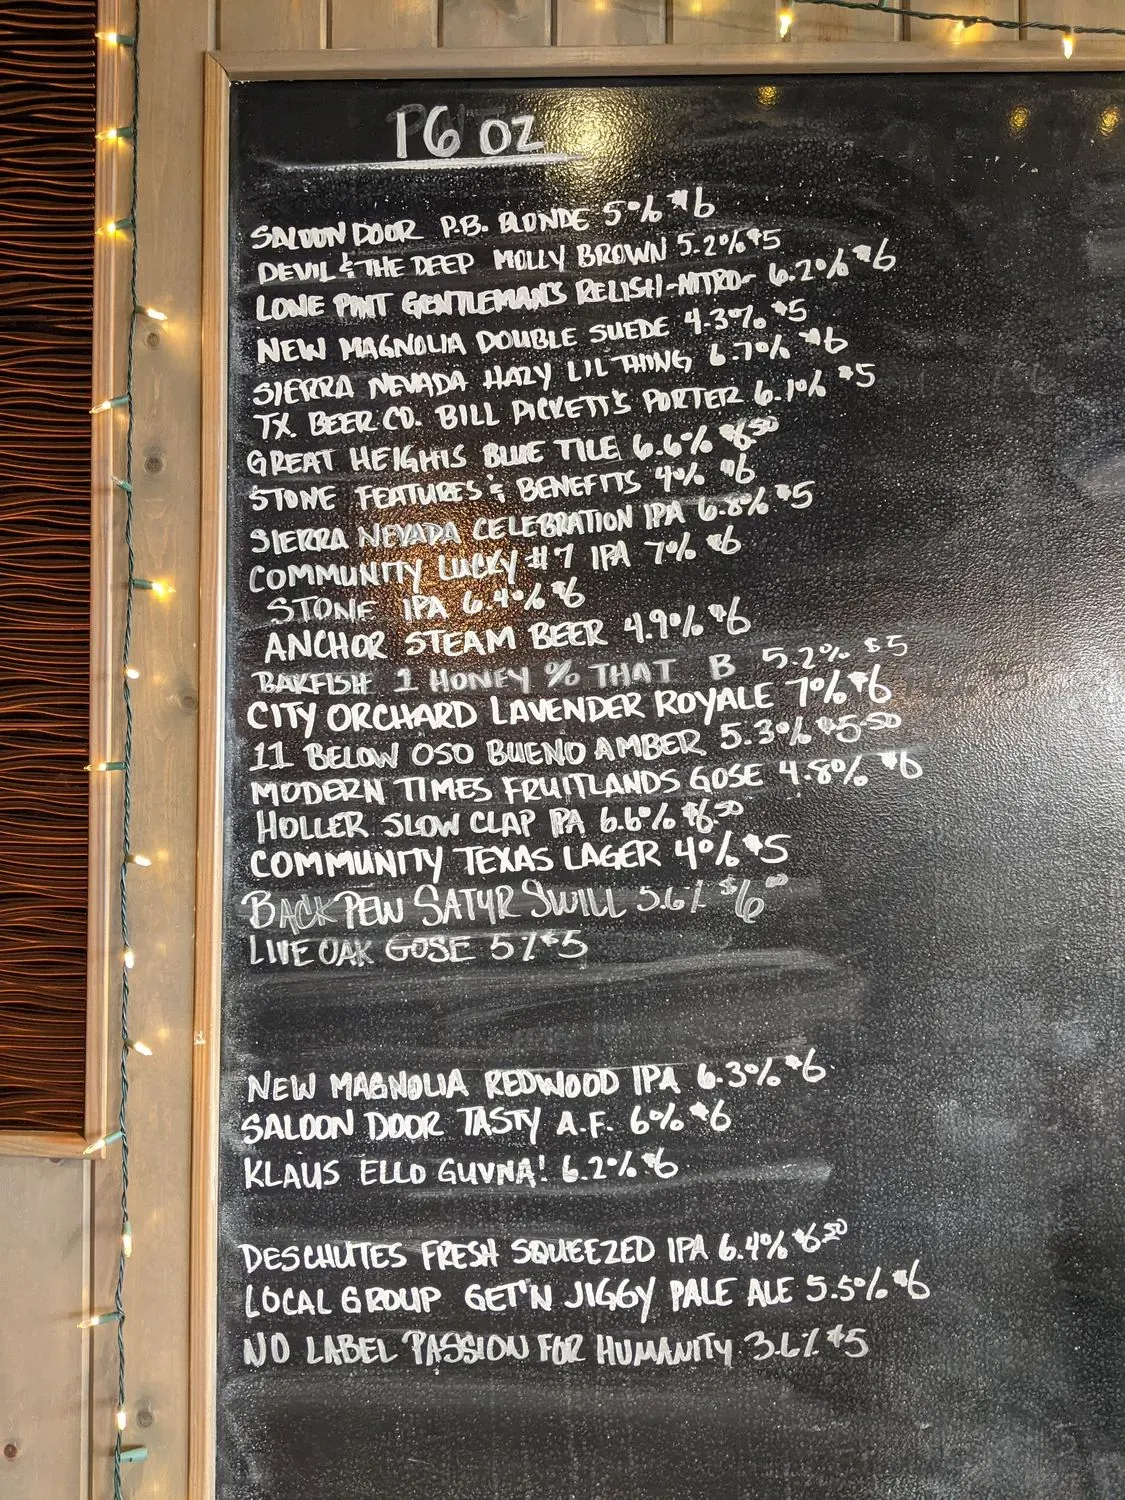 16 OZ
SALOON DOOR P.B. BLONDE 5% $6
DEVIL & THE DEEP MOLLY BROWN 5.2% $5
LONE PINT GENTLEMAN'S RELISH-NITRO- 6.2% $6
NEW MAGNOLIA DOUBLE SUEDE 4.3% $5
SIERRA NEVADA HAZY LIL THING 6.7% $6
TX. BEER CO. BILL PICKETT'S PORTER 6.1% $5
GREAT HEIGHTS BLUE TILE 6.6% $6.50
STONE FEATURES & BENEFITS 4% $6
SIERRA NEVADA CELEBRATION IPA 6.8% $5
COMMUNITY LUCKY #7 IPA 7% $6
STONE IPA 6.4% $6
ANCHOR STEAM BEER 4.9% $6
BAKFISH 1 HONEY % THAT B 5.2% $5
CITY ORCHARD LAVENDER ROYALE 7% $6
11 BELOW OSO BUENO AMBER 5.3% $5.50
MODERN TIMES FRUITLANDS GOSE 4.8% $6
HOLLER SLOW CLAP IPA 6.6% $6.50
COMMUNITY TEXAS LAGER 4% $5
BACK PEW SATYR SWILL 5.6% $6.00
LIVE OAK GOSE 5% $5
NEW MAGNOLIA REDWOOD IPA 6.3% $6
SALOON DOOR TASTY A.F. 6% $6
KLAUS ELLO GUVNA! 6.2% $6
DESCHUTES FRESH SQUEEZED IPA 6.4% $6.50
LOCAL GROUP GET'N JIGGY PALE ALE 5.5% $6
NO LABEL PASSION FOR HUMANITY 3.6% $5